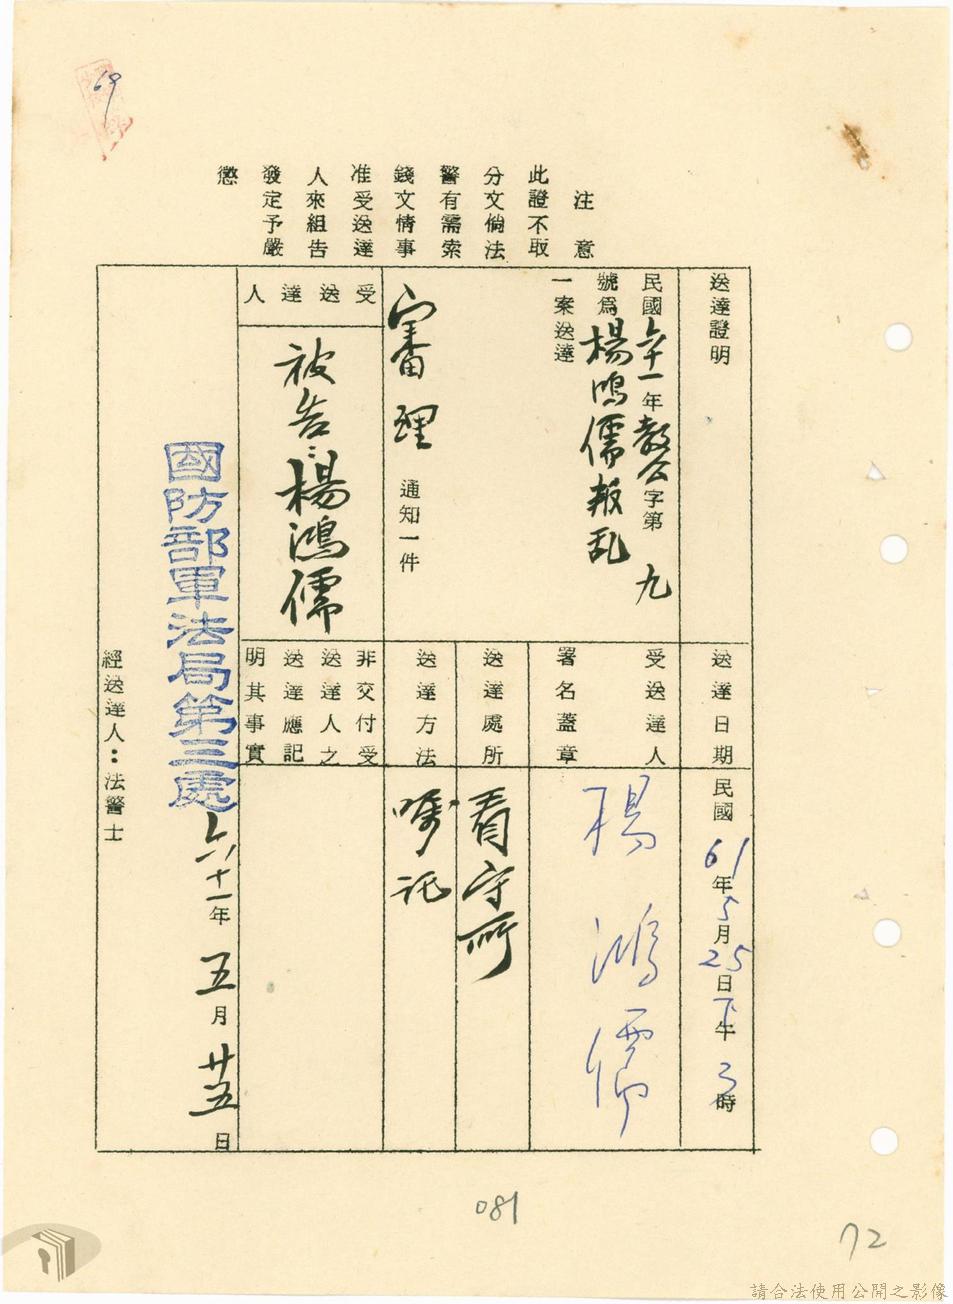 69
注意
此證不取
分文倘法
警有需索
錢文情事
准受送達
人來組告
發定予嚴
懲
送達證明
民國六十一年教公字第九
號為楊鴻儒叛乱
一案送達
審理通知一件
受送達人
被告：楊鴻儒
送達日期
民國61年5月25日下午3時
受送達人
署名蓋章
楊鴻儒
送達處所
看守所
送達方法
嘱託
非交付受
送達人之
送達應記
明其事實
國防部軍法局第三處
六十一年五月廿五日
經送達人：法警士
081
72
請合法使用公開之影像